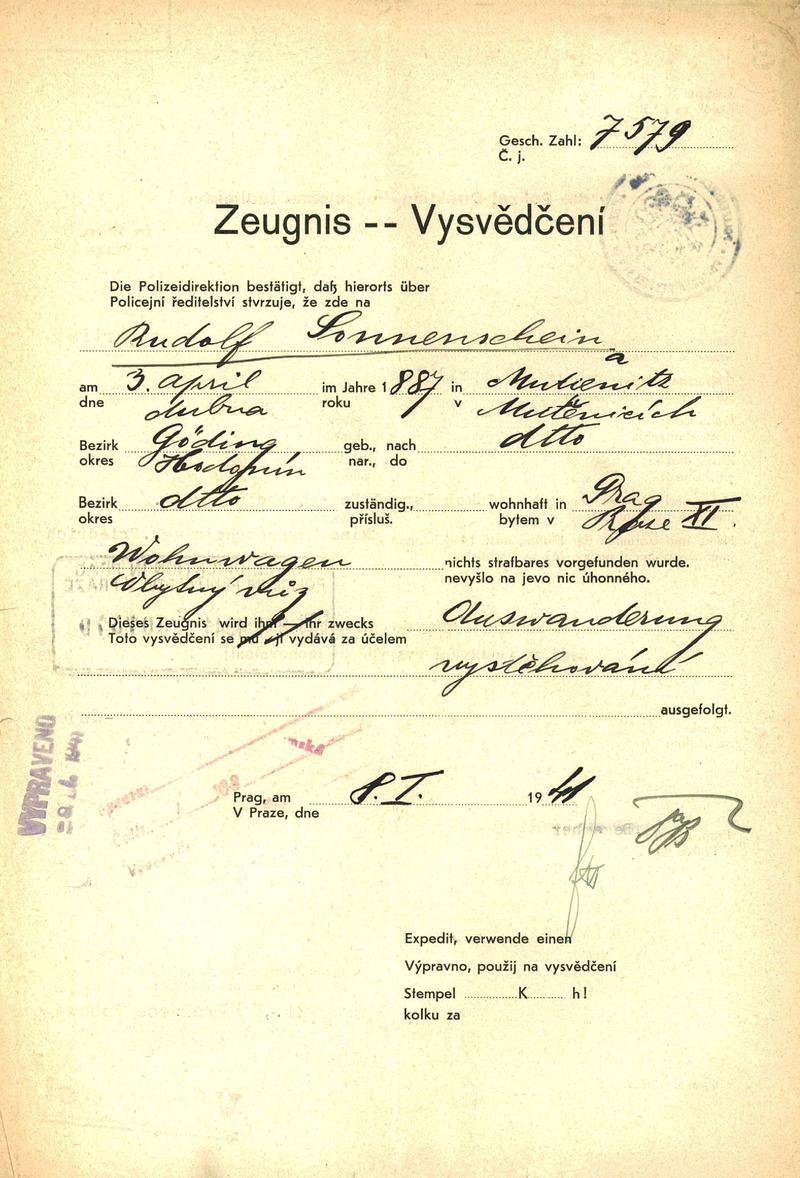 Gesch. Zahl: 7579
Č. j.
Zeugnis -- Vysvědčení
Die Polizeidirektion bestätigt, daß hierorts über
Policejní ředitelství stvrzuje, že zde na
Rudolf Sonnenschein
a
am 3. April im Jahre 1887 in Mutienitz
dne dubna roku v Mutěnicích
Bezirk Göding geb., nach dtto
okres Hodonín nar., do
Bezirk dtto zuständig., wohnhaft in Prag
okres přísluš. bytem v XI.
Wohnwagen nichts strafbares vorgefunden wurde.
Obytný vůz nevyšlo na jevo nic úhonného.
Dieses Zeugnis wird ihm — ihr zwecks Auswanderung
Toto vysvědčení se mu - jí vydává za účelem
vystěhování
ausgefolgt.
VYPRAVENO
Prag, am 8. I. 1941
V Praze, dne
Expedit, verwende einen
Výpravno, použij na vysvědčení
Stempel K h!
kolku za